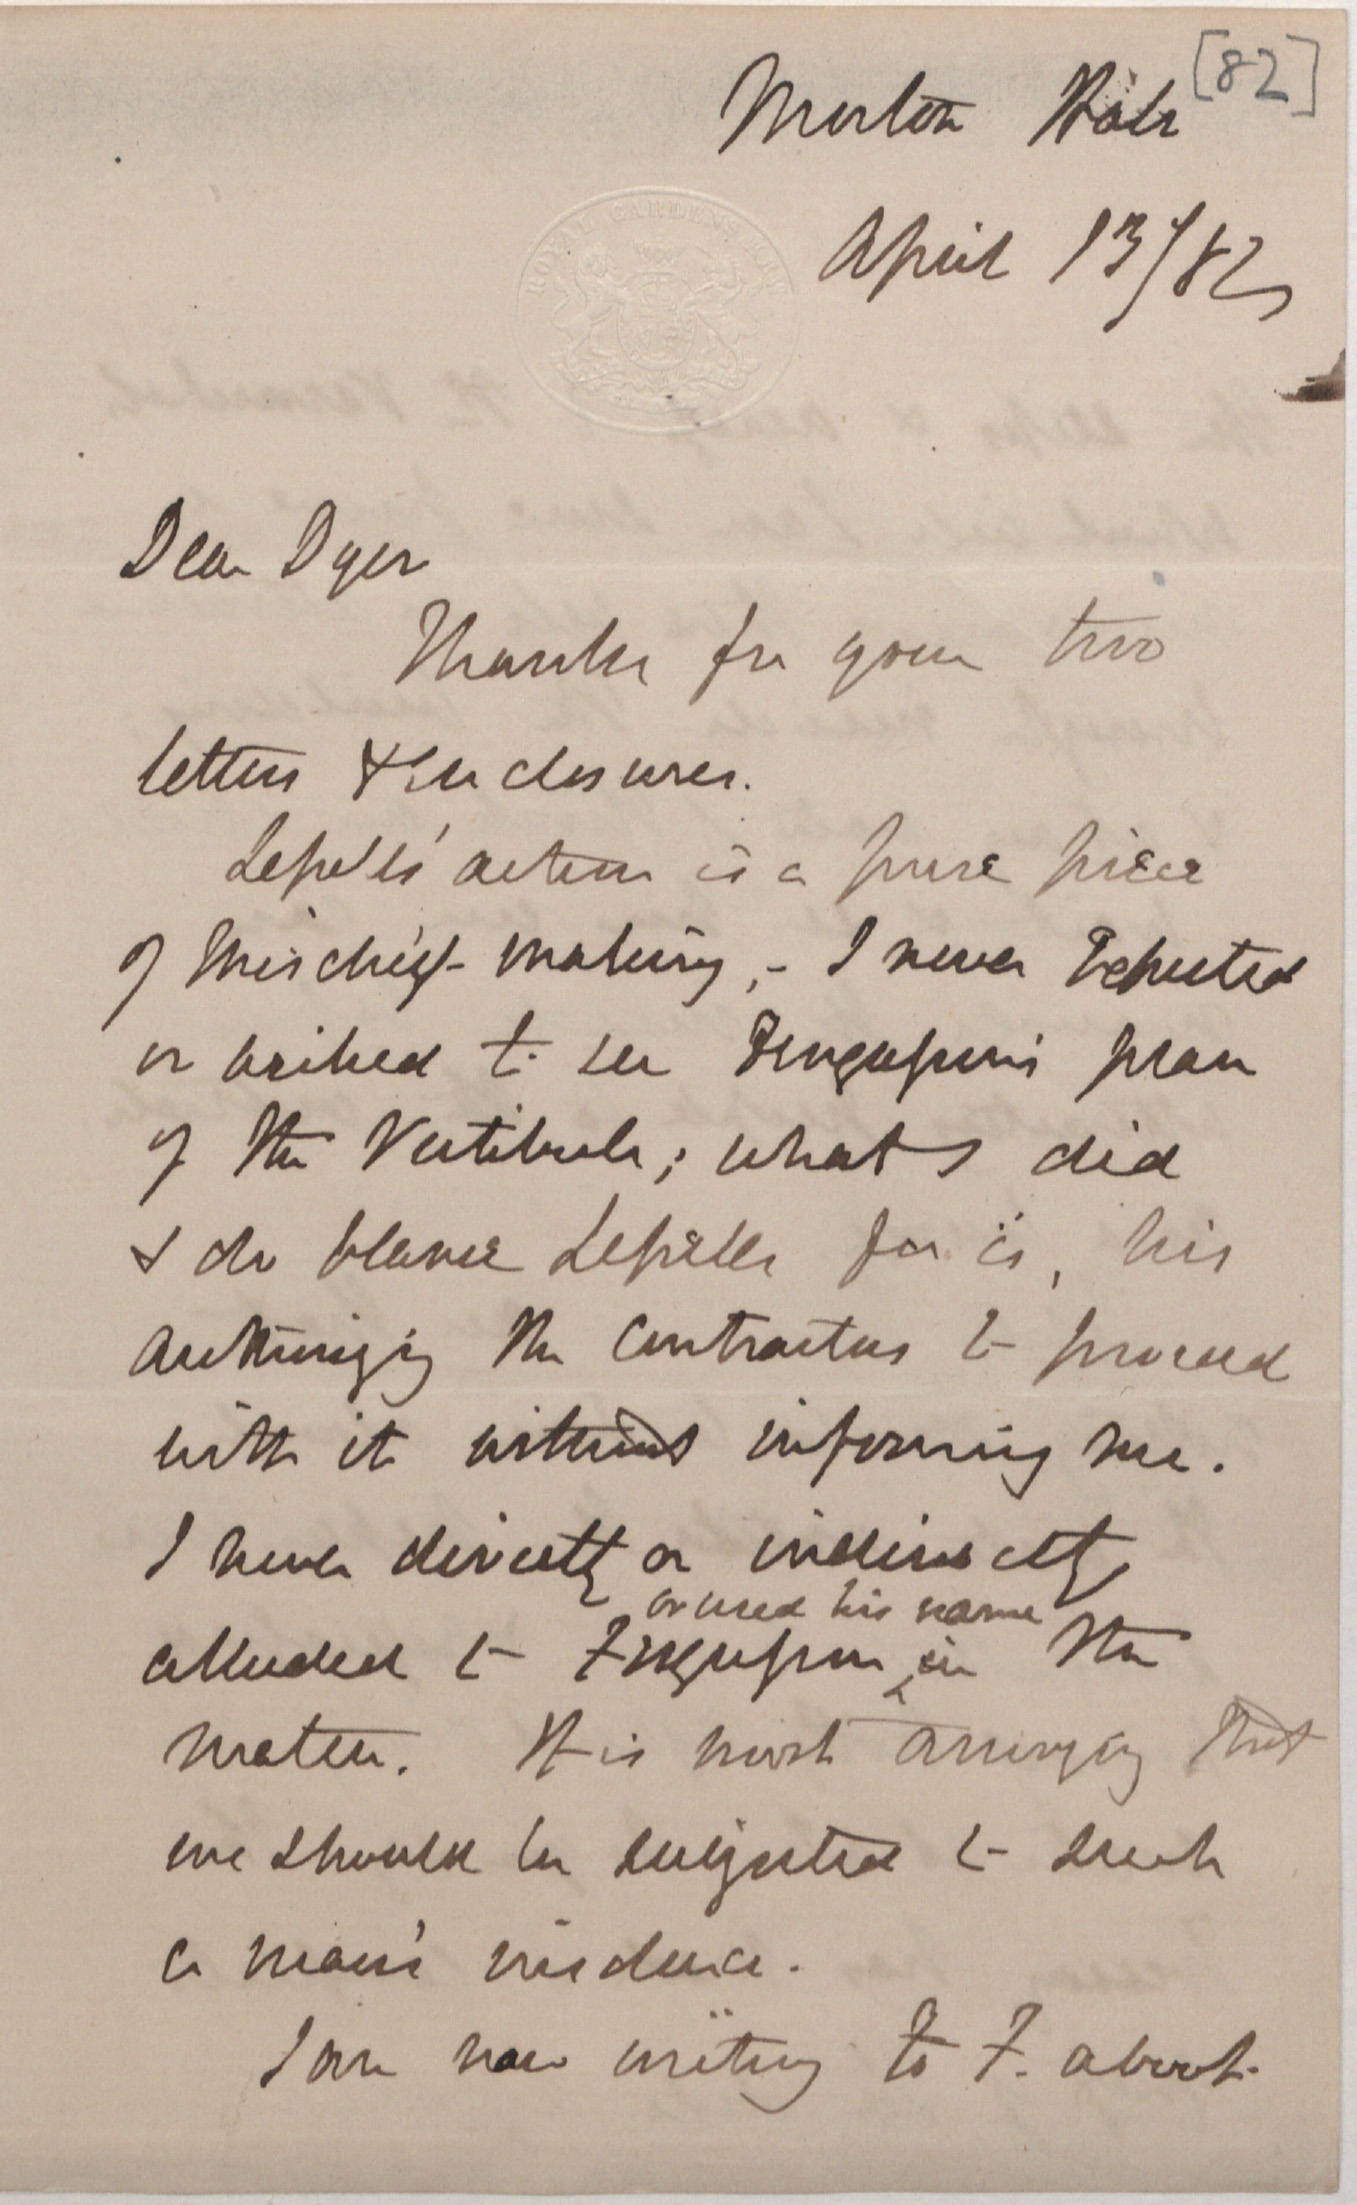 [82]
Morton Hale
April 13/82
ROYAL GARDENS KEW
Dear Dyer
Thanks for your two
letters & enclosures.
action is a pure piece
of mischief-making, - I never expected
or wished to see Fergusson's plan
of the Vestibule; what I did
& do blame for is, his
authorizing the contractors to proceed
with it without informing me.
I never directly or indirectly
or used his name
alluded to Fergusson in the
matter. It is most annoying that
we should be subjected to such
a man's
I am now writing to F. about